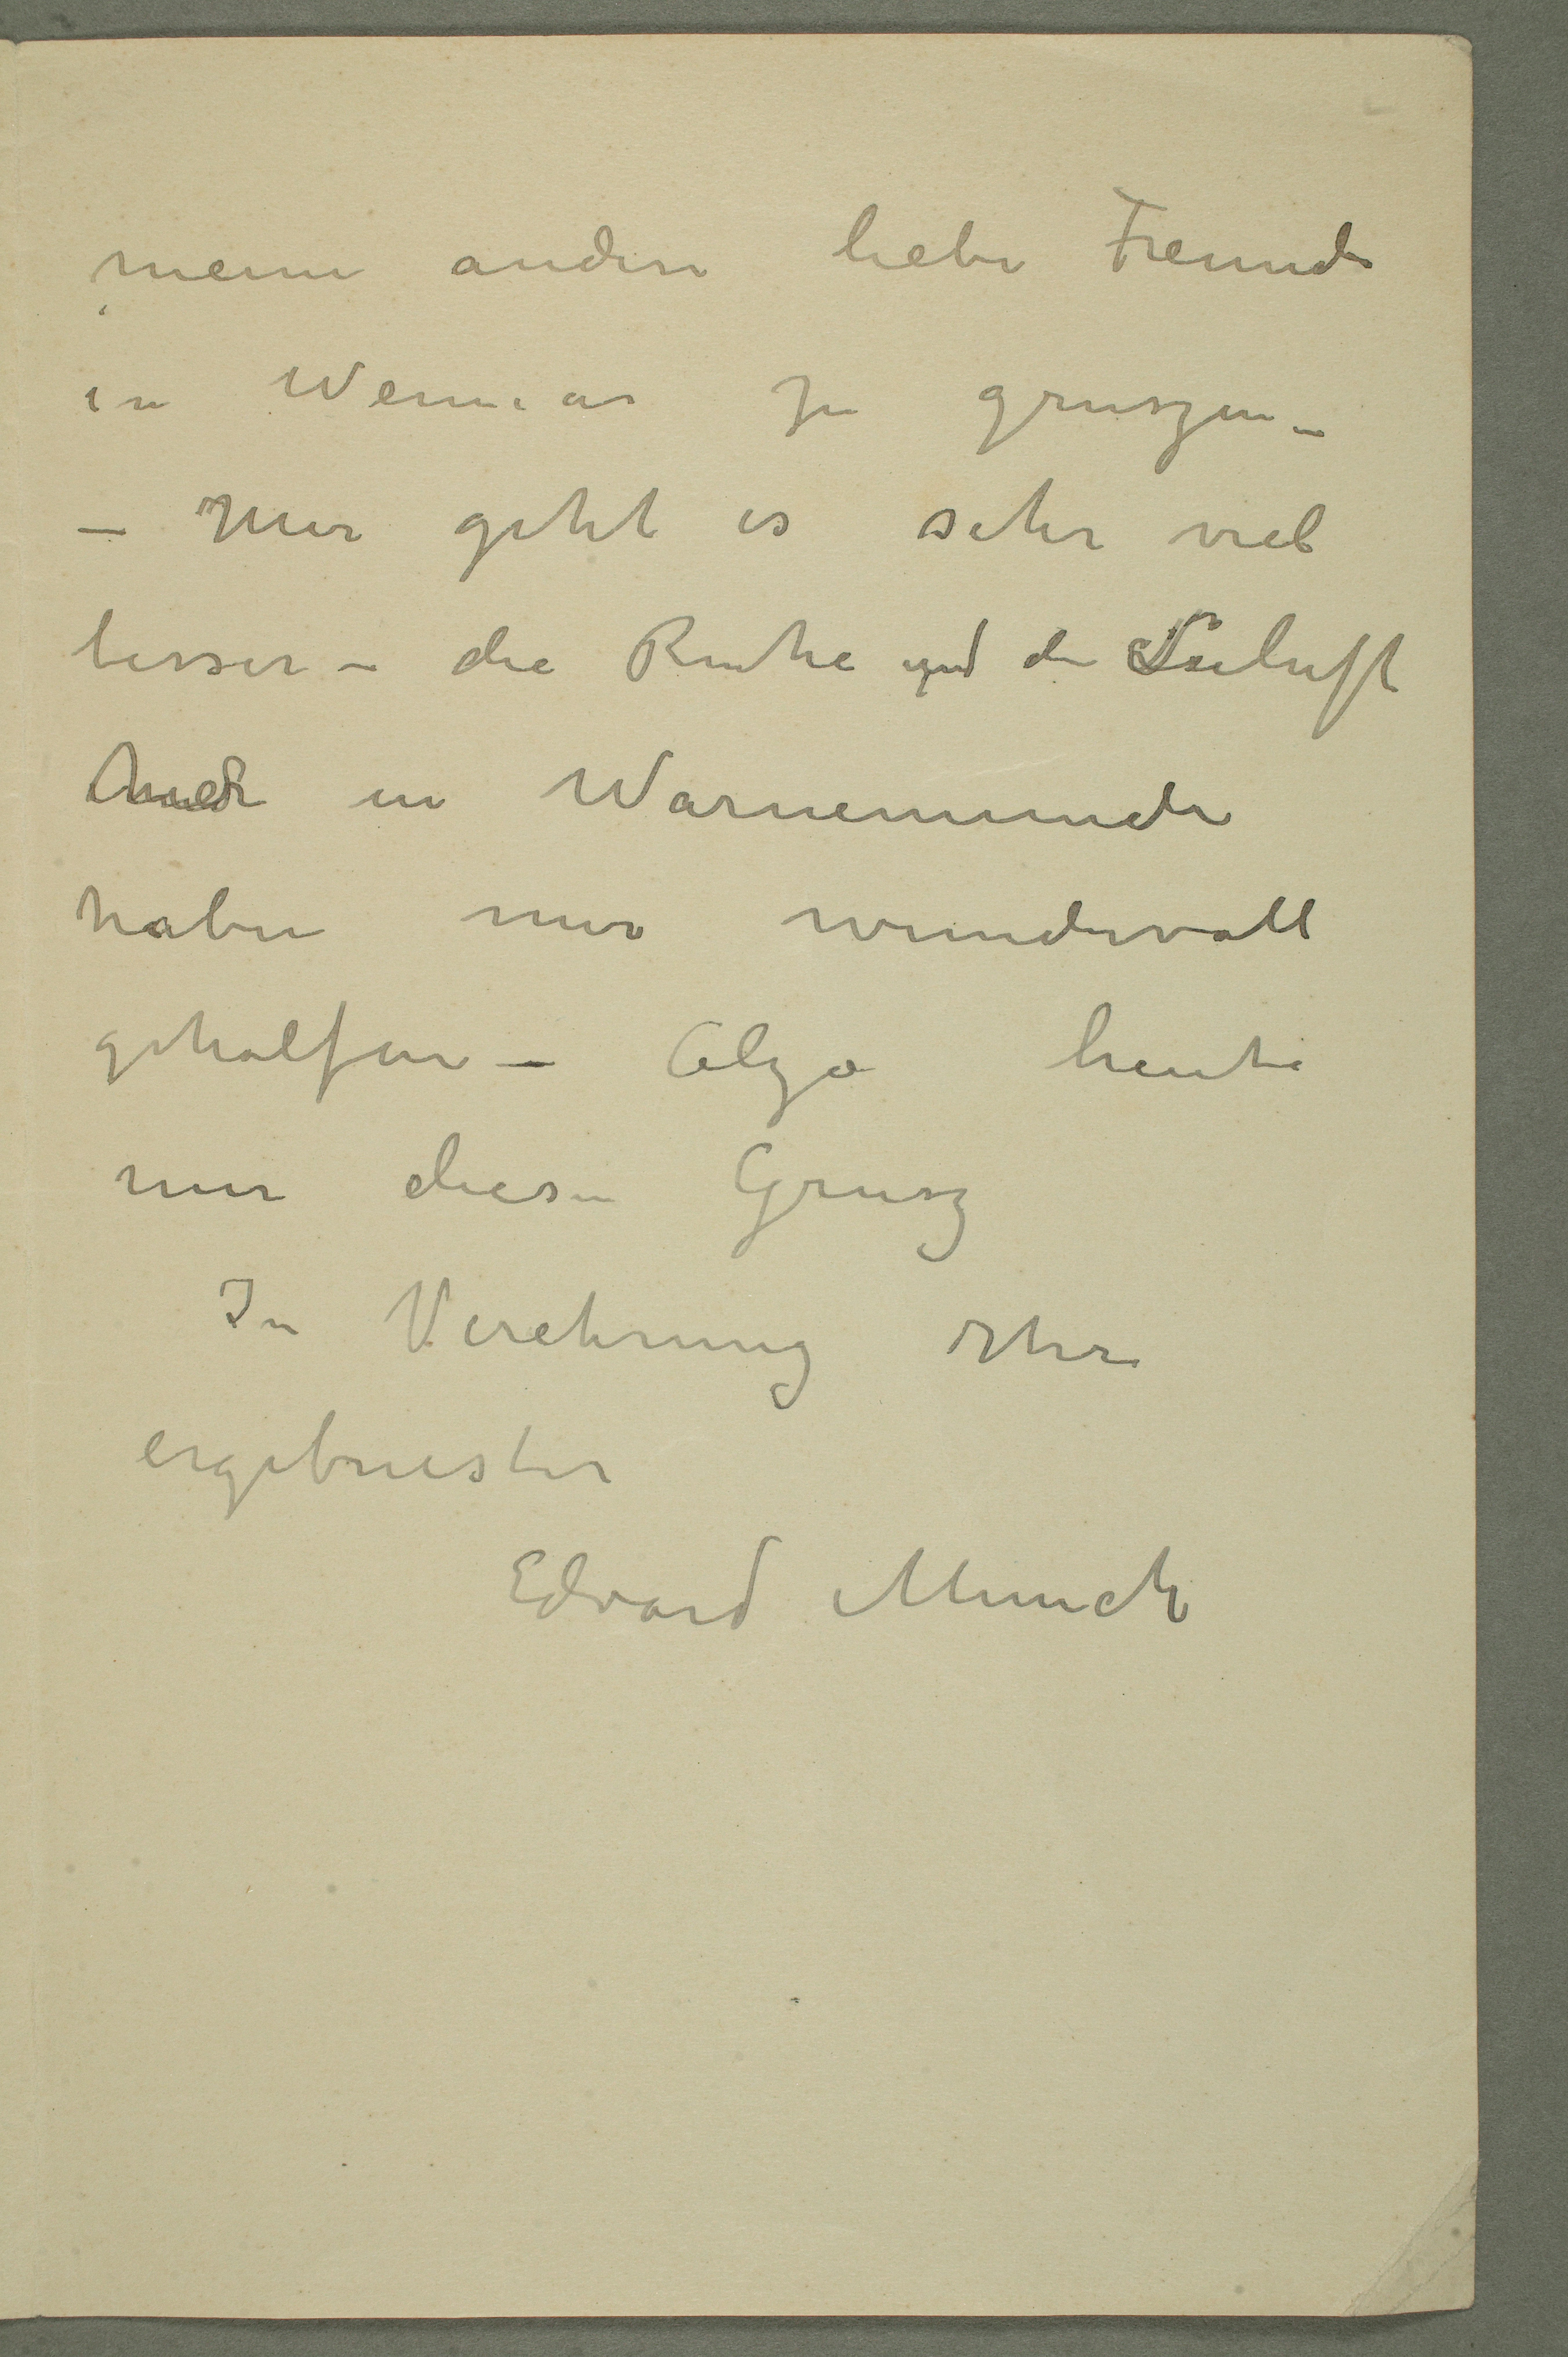 meine andere liebe Freunde
in Weimar zu gruszen –
– Mir geht es sehr viel
besser – die Ruhe und die Seeluft
in Warnemunde
haben mir wundervoll
geholfen – Alzo heute
nur diesen Grusz
In Verehrung Ihre
ergebnester
Edvard Munch